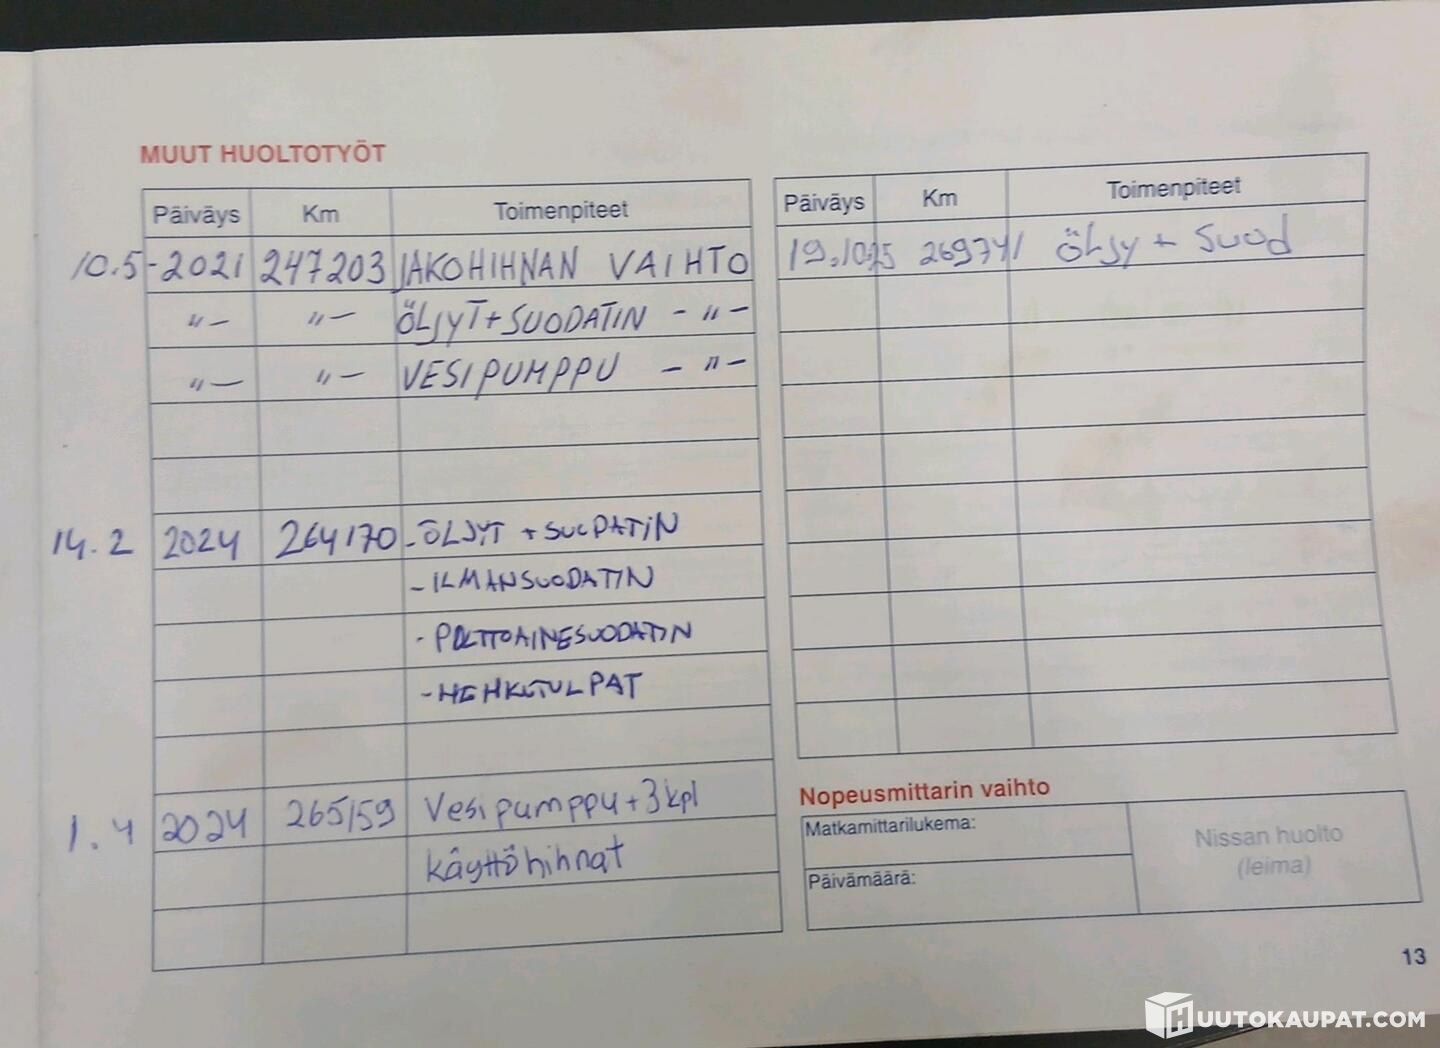 MUUT HUOLTOTYÖT
Päiväys Km Toimenpiteet
10.5-2021 247203 JAKOHIHNAN VAIHTO
-"- -"- ÖLJYT+SUODATIN -"-
-"- -"- VESIPUMPPU -"-
14.2 2024 264170 -ÖLJYT + SUODATIN
-ILMANSUODATIN
-POLTTOAINESUODATIN
-HEHKUTULPAT
1.4 2024 265159 Vesipumppu+3kpl
käyttöhihnat
Päiväys Km Toimenpiteet
19.10.25 269741 ÖLJy + SUOD
Nopeusmittarin vaihto
Matkamittarilukema:
Päivämäärä:
Nissan huolto
(leima)
13
HUUTOKAUPAT.COM